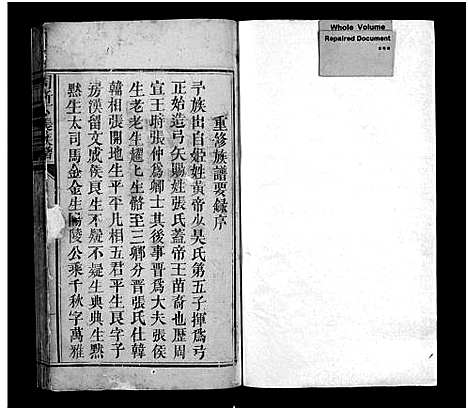 Whole Volume
Repaired Document
重修族譜要錄序
予族出自姬姓黃帝少昊氏第五子揮為弓
正始造弓矢賜姓張氏蓋帝王苗裔也歷周
宣王時張仲為卿士其後事晉為大夫張侯
生老老生趯趯生骼至三卿分晉張氏仕韓
韓相張開地生平平凡相五君平生良字子
房漢留文成侯良生不疑不疑生典典生黙
黙生太司馬金金生陽陵公乘千秋字萬雅